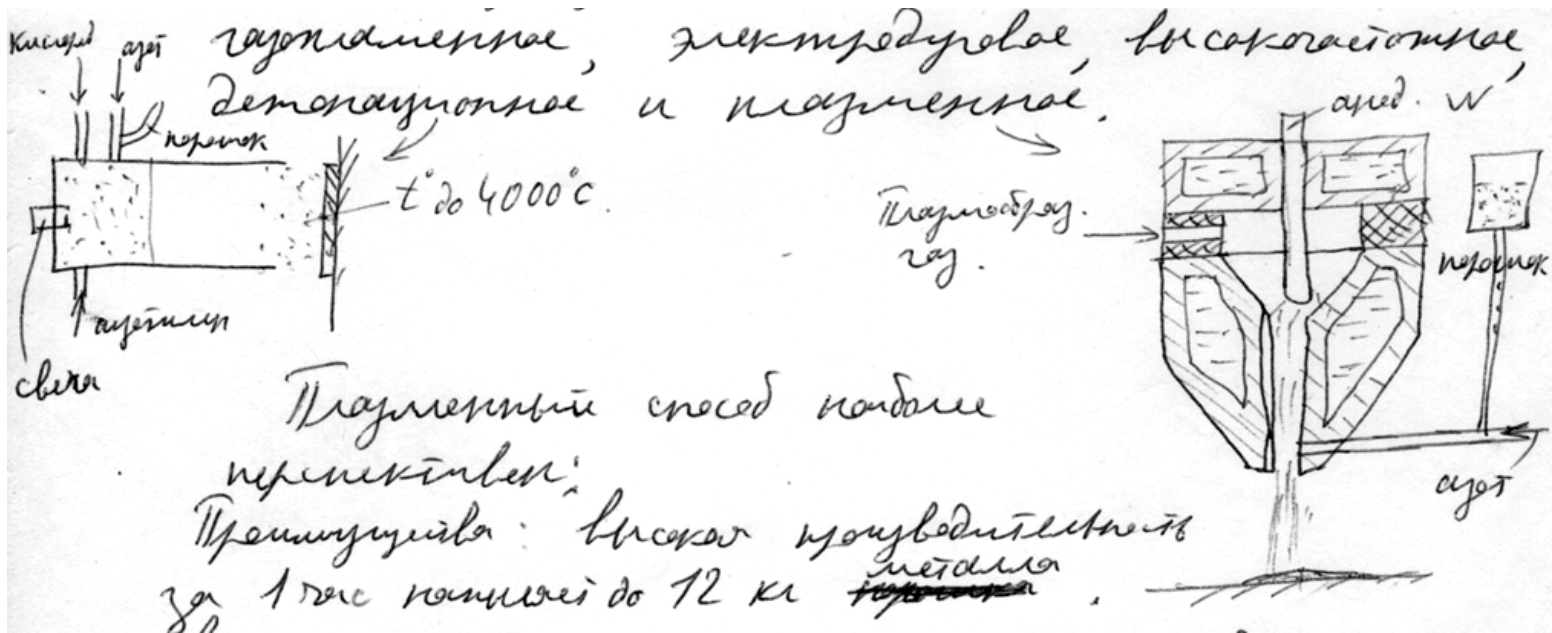 кислород азот
газопламенное, электродуговое, высокочастотное,
детонационное и плазменное.
порошок
t° до 4000°С.
ацетилен
свеча
W
Плазмообраз.
газ.
порошок
азот
Плазменный способ наиболее
перспективен:
Преимущества: высокая производительность
за 1 час до 12 кг металла .